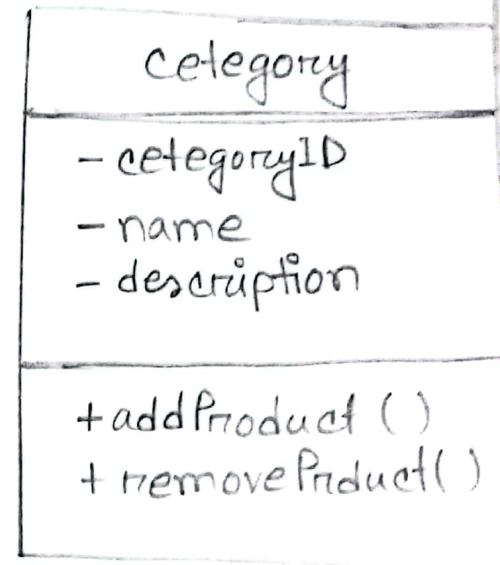 cetegory
- cetegoryID
- name
- description
+ addProduct ( )
+ removePrduct( )